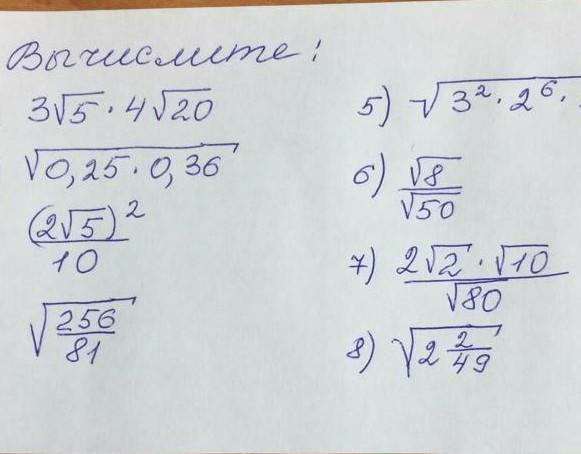 Вычислите:
3√5 · 4√20
√(0,25 · 0,36)
(2√5)² / 10
√(256/81)
5) √(3² · 2⁶ ·
6) √8 / √50
7) 2√2 · √10 / √80
8) √(2 2/49)